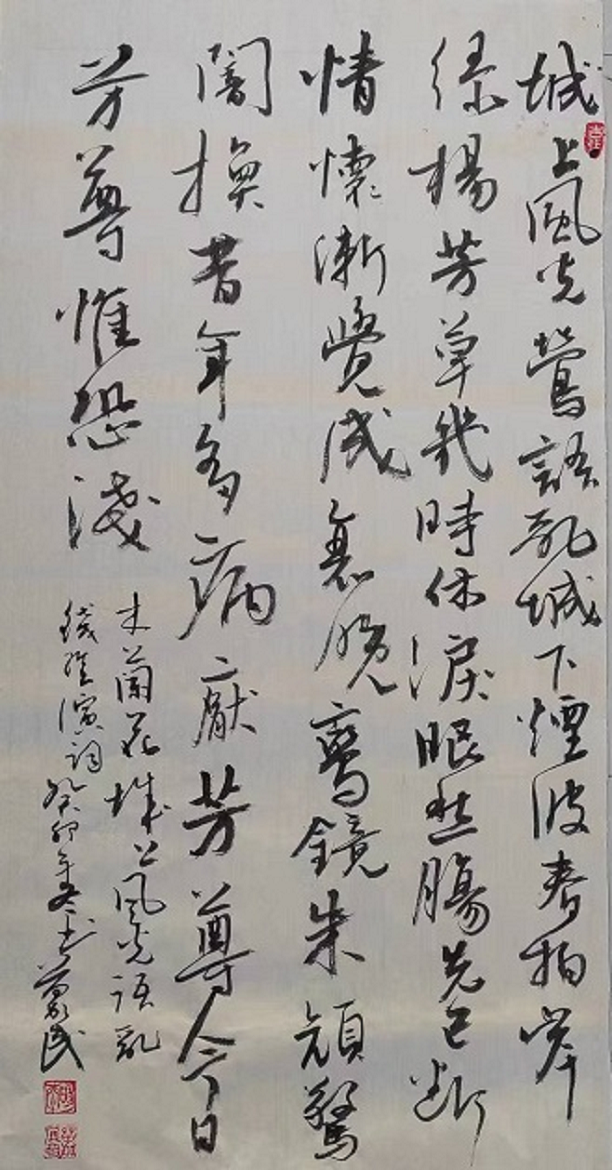 城上風光鶯語亂城下煙波春拍岸
綠楊芳草幾時休淚眼愁腸先已斷
情懷漸覺成衰晚鸞鏡朱顔驚
闇換昔年多病厭芳尊今日
芳尊惟恐淺
木蘭花城上風光語亂
錢惟演詞癸卯年夏書萬民